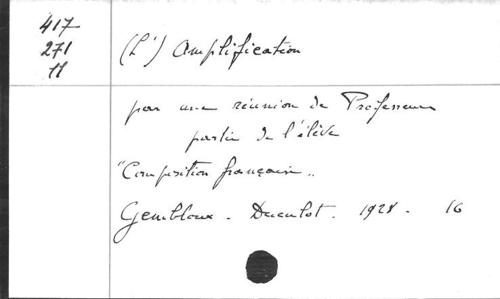 417
271
11
(L') Amplification
par une réunion de Professeurs
partie de l'élève
"Composition française"
Gembloux - Duculot - 1928 - 16